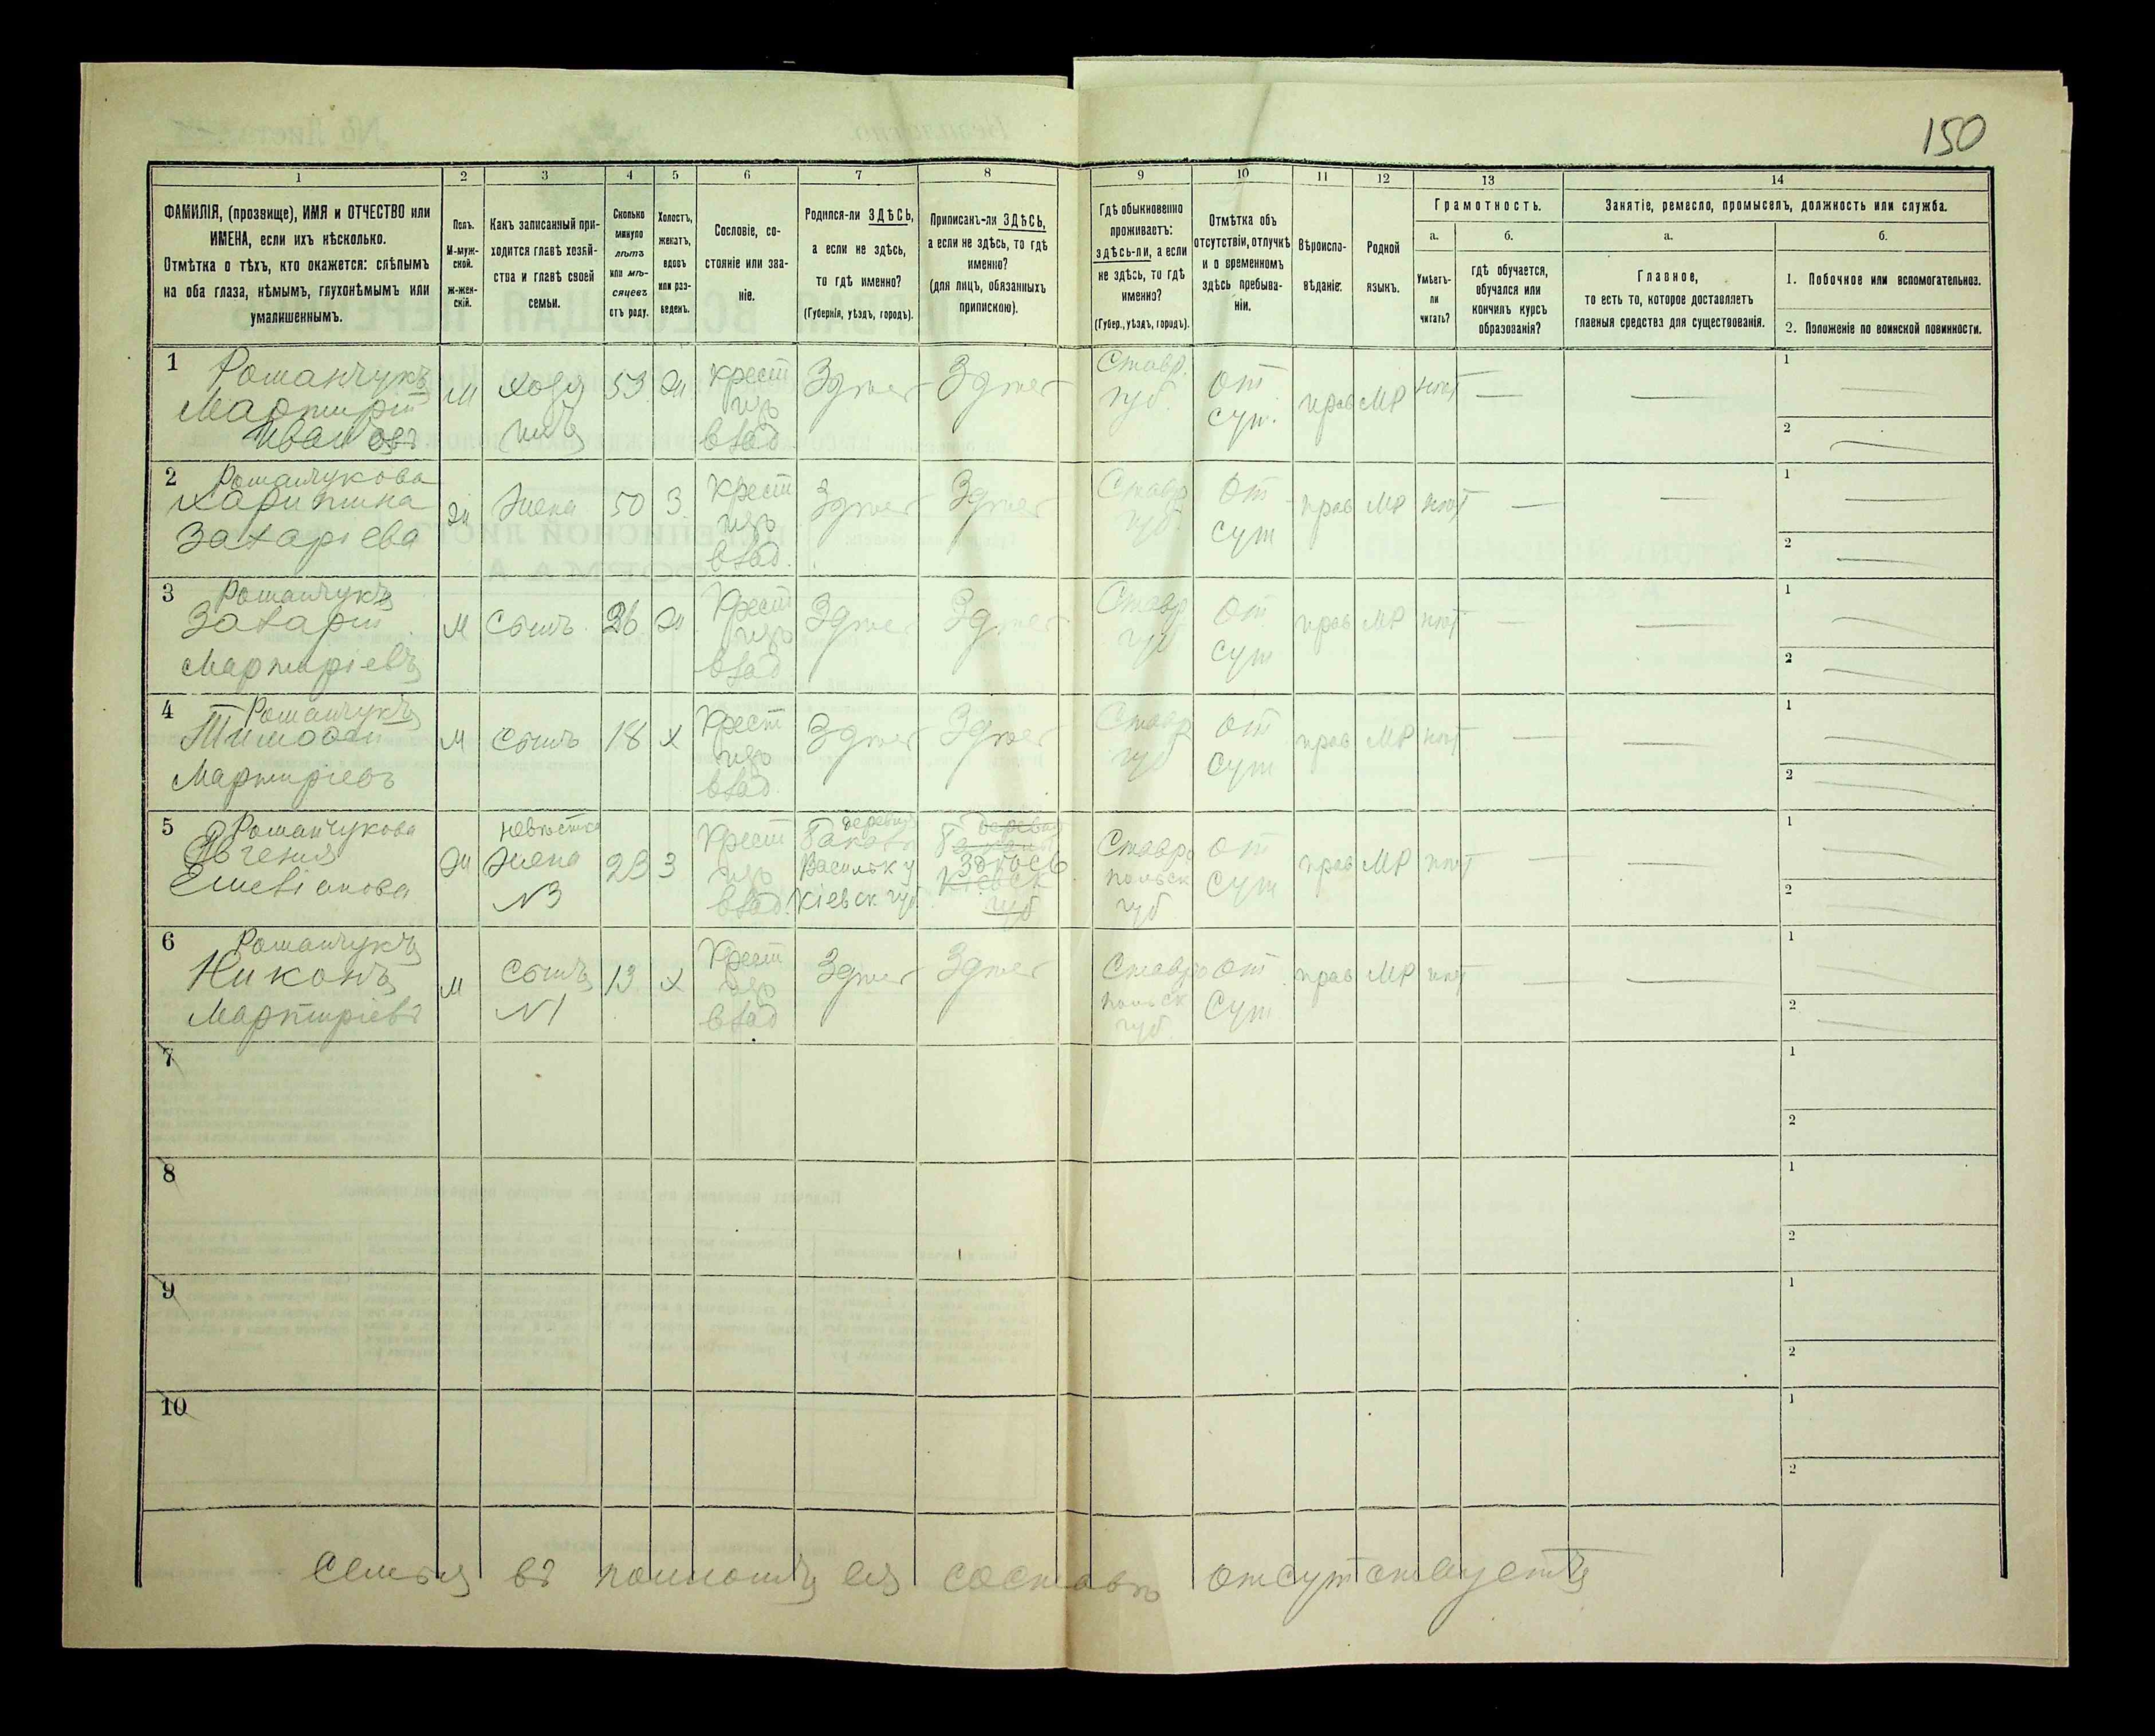 150
1 2 3 4 5 6 7 8 9 10 11 12 13 14
ФАМИЛІЯ, (прозвище), ИМЯ и ОТЧЕСТВО или
ИМЕНА, если ихъ нѣсколько.
Отмѣтка о тѣхъ, кто окажется: слѣпымъ
на оба глаза, нѣмымъ, глухонѣмымъ или
умалишеннымъ.
Полъ.
М-муж-
ской.
ж-жен-
скій.
Какъ записанный при-
ходится главѣ хозяй-
ства и главѣ своей
семьи.
Сколько
минуло
лѣтъ
или мѣ-
сяцевъ
отъ роду.
Холостъ,
женатъ,
вдовъ
или раз-
веденъ.
Сословіе, со-
стояніе или зва-
ніе.
Родился-ли ЗДѢСЬ,
а если не здѣсь,
то гдѣ именно?
(Губернія, уѣздъ, городъ).
Приписанъ-ли ЗДѢСЬ,
а если не здѣсь, то гдѣ
именно?
(для лицъ, обязанныхъ
припискою).
Гдѣ обыкновенно
проживаетъ:
здѣсь-ли, а если
не здѣсь, то гдѣ
именно?
(Губер., уѣздъ, городъ).
Отмѣтка объ
отсутствіи, отлучкѣ
и о временномъ
здѣсь пребыва-
ніи.
Вѣроиспо-
вѣданіе.
Родной
языкъ.
Грамотность.
а.
Умѣетъ-
ли
читать?
б.
гдѣ обучается,
обучался или
кончилъ курсъ
образованія?
Занятіе, ремесло, промыселъ, должность или служба.
а.
Главное,
то есть то, которое доставляетъ
главныя средства для существованія.
б.
1. Побочное или вспомогательное.
2. Положеніе по воинской повинности.
1 Романчукъ
Мартирій
Ивановъ
М
хозя
инъ
53
Ж
крест
изъ
влад
Здѣсь
Здѣсь
Ставр.
губ.
от
сут.
прав
МР
нѣт
1
2
2 Романчукова
Харитина
Захаріева
Ж
Жена
50
З.
Крест
изъ
влад.
Здѣсь
Здѣсь
Ставр
губ.
От
сут
прав
МР
нѣт
1
2
3 Романчукъ
Захарій
Мартиріевъ
М
Сынъ
26
Ж
Крест
изъ
влад
Здѣсь
Здѣсь
Ставр
губ
От
сут
прав
МР
нѣт
1
2
4 Романчукъ
Тимофей
Мартиріевъ
М
Сынъ
18
х
Крест
изъ
влад.
Здѣсь
Здѣсь
Ставр
губ
От
сут
прав
МР
нѣт
1
2
5 Романчукова
Евгенія
Ж
невѣстка
Жена
№3
23
З
Крест
изъ
влад.
деревня
Васильк у
Кіевск губ
деревня
Здѣсь
Кіевск
губ
Ставро
польск
губ
От
сут
прав
МР
нѣт
1
2
6 Романчукъ
Никонъ
Мартиріевъ
М
Сынъ
№1
13
х
Крест
изъ
влад
Здѣсь
Здѣсь
Ставро
польск
губ.
От
Сут
прав
МР
нѣт
1
2
7
1
2
8
1
2
9
1
2
10
1
2
Семья въ полномъ ея составѣ отсутствуетъ